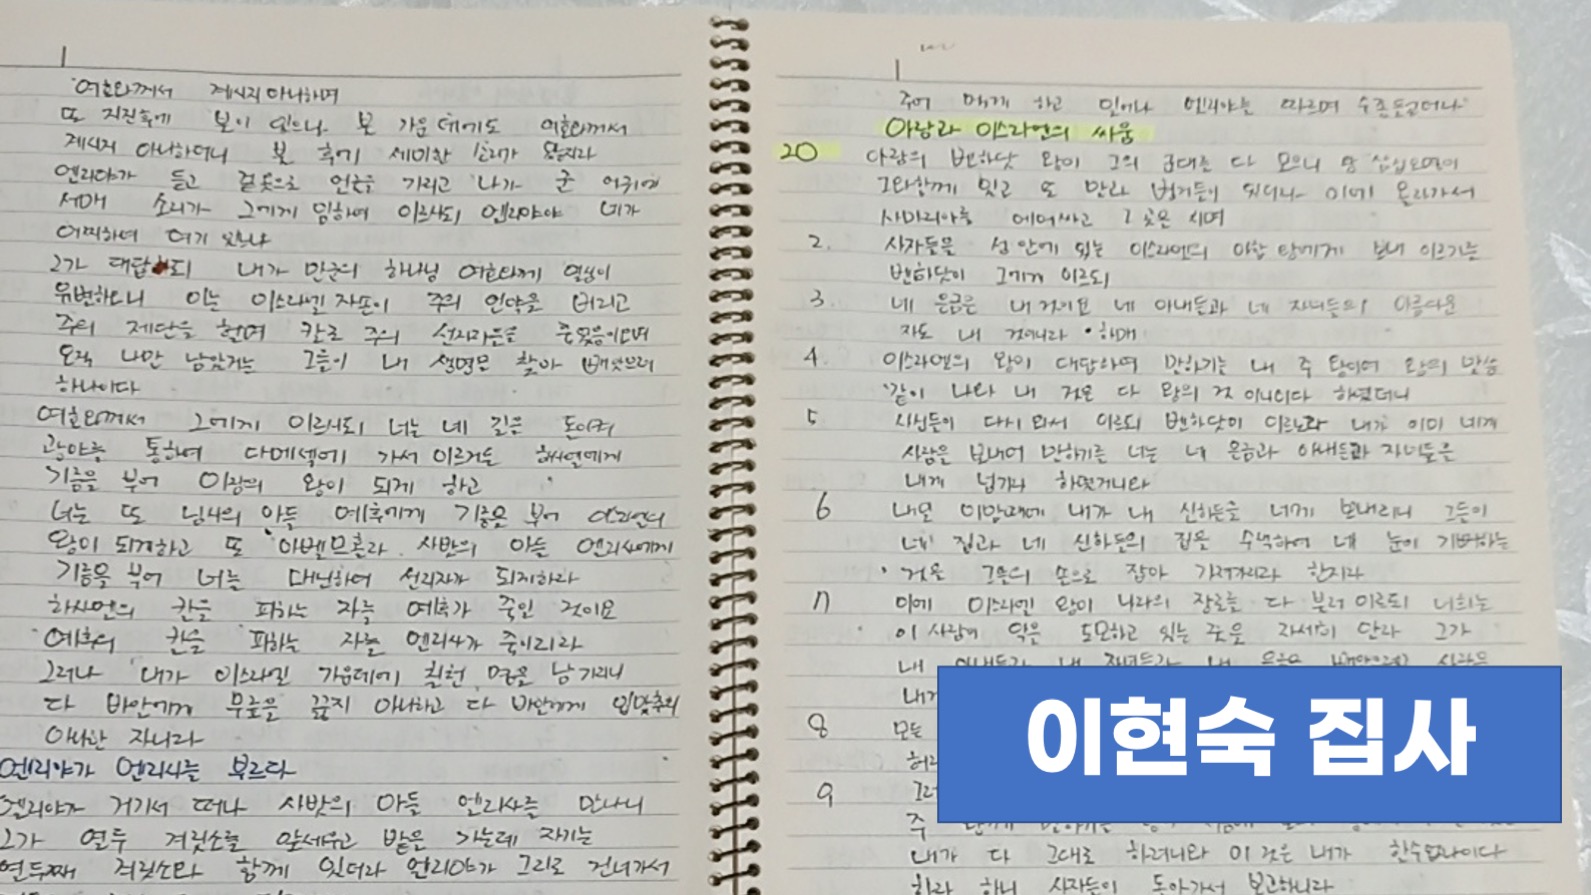 여호와께서 계시지 아니하며
또 지진 후에 불이 있으나 불 가운데에도 여호와께서
계시지 아니하더니 불 후에 세미한 소리가 있는지라
엘리야가 듣고 겉옷으로 얼굴을 가리고 나가 굴 어귀에
서매 소리가 그에게 임하여 이르시되 엘리야야 네가
어찌하여 여기 있느냐
그가 대답하되 내가 만군의 하나님 여호와께 열심이
유별하오니 이는 이스라엘 자손이 주의 언약을 버리고
주의 제단을 헐며 칼로 주의 선지자들을 죽였음이오며
오직 나만 남았거늘 그들이 내 생명을 찾아 빼앗으려
하나이다
여호와께서 그에게 이르시되 너는 네 길을 돌이켜
광야를 통하여 다메섹에 가서 이르거든 하사엘에게
기름을 부어 아람의 왕이 되게 하고
너는 또 님시의 아들 예후에게 기름을 부어 이스라엘의
왕이 되게하고 또 아벨므홀라 사밧의 아들 엘리사에게
기름을 부어 너를 대신하여 선지자가 되게하라
하사엘의 칼을 피하는 자를 예후가 죽일 것이요
예후의 칼을 피하는 자를 엘리사가 죽이리라
그러나 내가 이스라엘 가운데에 칠천 명을 남기리니
다 바알에게 무릎을 꿇지 아니하고 다 바알에게 입맞추지
아니한 자니라
엘리야가 엘리사를 부르다
엘리야가 거기서 떠나 사밧의 아들 엘리사를 만나니
그가 열두 겨릿소를 앞세우고 밭을 가는데 자기는
열두째 겨릿소와 함께 있더라 엘리야가 그리로 건너가서
주어 먹게 하고 일어나 엘리야를 따르며 수종들었더라
아람과 이스라엘의 싸움
20 아람의 벤하닷 왕이 그의 군대를 다 모으니 왕 삼십이명이
그와함께 있고 또 말과 병거들이 있더라 이에 올라가서
사마리아를 에워싸고 그 곳을 치며
2. 사자들을 성 안에 있는 이스라엘의 아합 왕에게 보내 이르기를
벤하닷이 그에게 이르되
3. 네 은금은 내 것이요 네 아내들과 네 자녀들의 아름다운
자도 내 것이니라 하매
4. 이스라엘의 왕이 대답하여 말하기를 내 주 왕이여 왕의 말씀
같이 나와 내 것은 다 왕의 것 이니이다 하였더니
5 사신들이 다시 와서 이르되 벤하닷이 이르노라 내가 이미 네게
사람을 보내어 말하기를 너는 네 은금과 아내들과 자녀들을
내게 넘기라 하였거니와
6 내일 이맘때에 내가 내 신하들을 네게 보내리니 그들이
네 집과 네 신하들의 집을 수색하여 네 눈이 기뻐하는
것을 그들의 손으로 잡아 가져가리라 한지라
7 이에 이스라엘 왕이 나라의 장로를 다 불러 이르되 너희는
이 사람이 악을 도모하고 있는 줄을 자세히 알라 그가
내 아내들과 내 자녀들과 내 은금을 빼앗으려고 사람을
내게
8 모든
9 그러
주
내가 다 그대로 하려니와 이 것은 내가 할수없나이다
하라 하니 사자들이 돌아가서 보고하니라
이현숙 집사